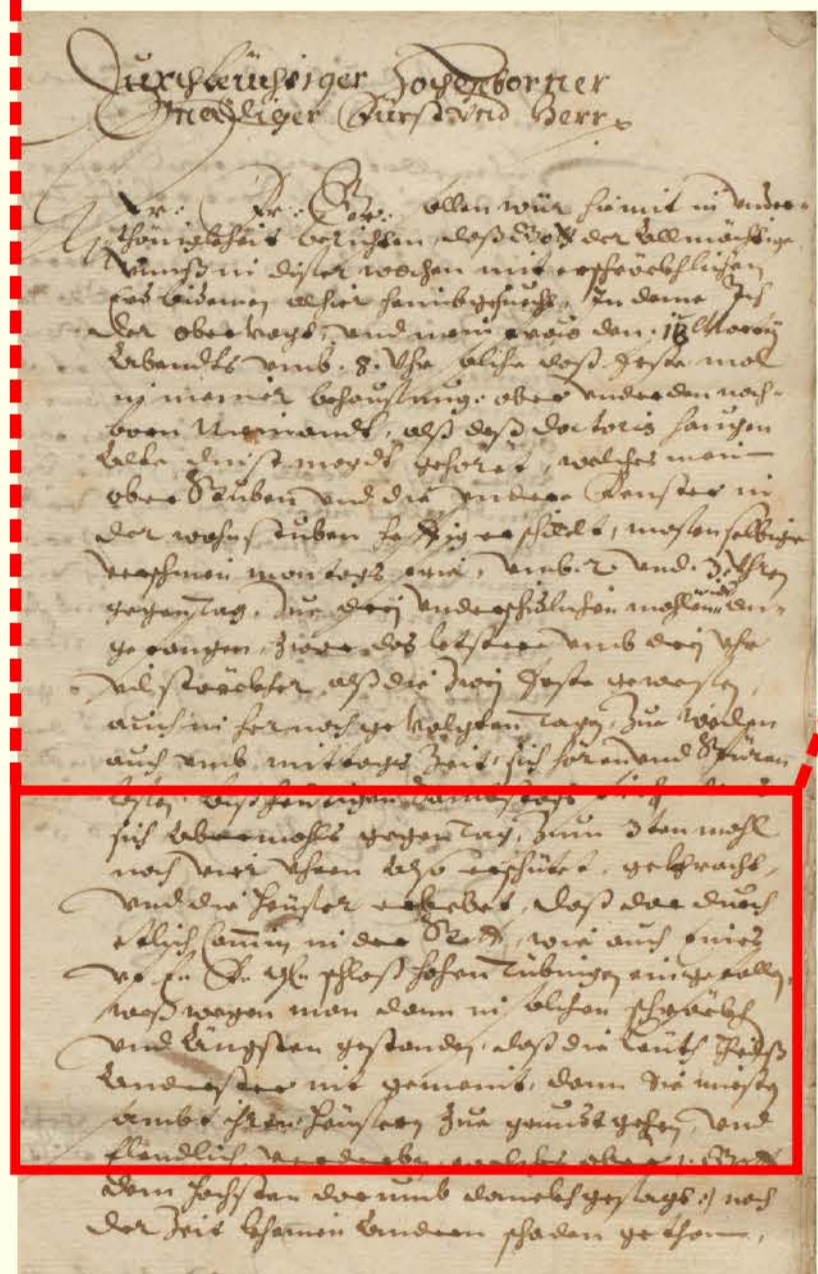 Durchleüchtiger Hochgeborner
Gnädiger Fürst und Herr
Er: Fr: Gn: sollen wür hiemit in under-
thönigkheit berichten, daß Gott der Allmächtige
vunß in diser wochen mit erschröckhlichen
Erdbidemen alhier heimbgesuecht, In deme Ich
der obervogt, und mein den Martij
Abendts umb .8. Uhr, daß erste mol
in meiner behausung, aber under den noch-
born Niemandt, alß daß doctoris haugen
Alte dinstmagdt gehöret, welches mein
ober Stuben und die undere Fenster in
der wohnstuben hefftig erschitlt, masen selbige
verschinen montags umb .2. und .3. Uhren
gegen Tag, zue drey underschidlichen mohlen
gegangen, zwar das letstere umb drey Uhr
vil störckher, alß die zwey erste gewesen,
auch in hernoch gevolgten Tagen, zue
auch umb mittags Zeit, sich hören und Spüren
lasen, biß
sich abermohls gegen Tag, zum 3ten mohl
noch vier Uhren also erschütet, gekhracht,
und die heüser erbebet, daß dar durch
etlich Camin in der Statt, wie auch eines
uf E. F. Gn. schloß hohen Tübingen eingefallen,
weßwegen man dann in solchen schröckh
und Ängsten gestanden, daß die Leüth
Anderster nit gemeint, dann Sie miesen
sambt ihren heüsern zue grundt gehen, und
Elendlich verderben, welches aber :/: Gott
dem höchsten darumb danckh gesagt :/: noch
der Zeit kheinen Andern schaden gethon,